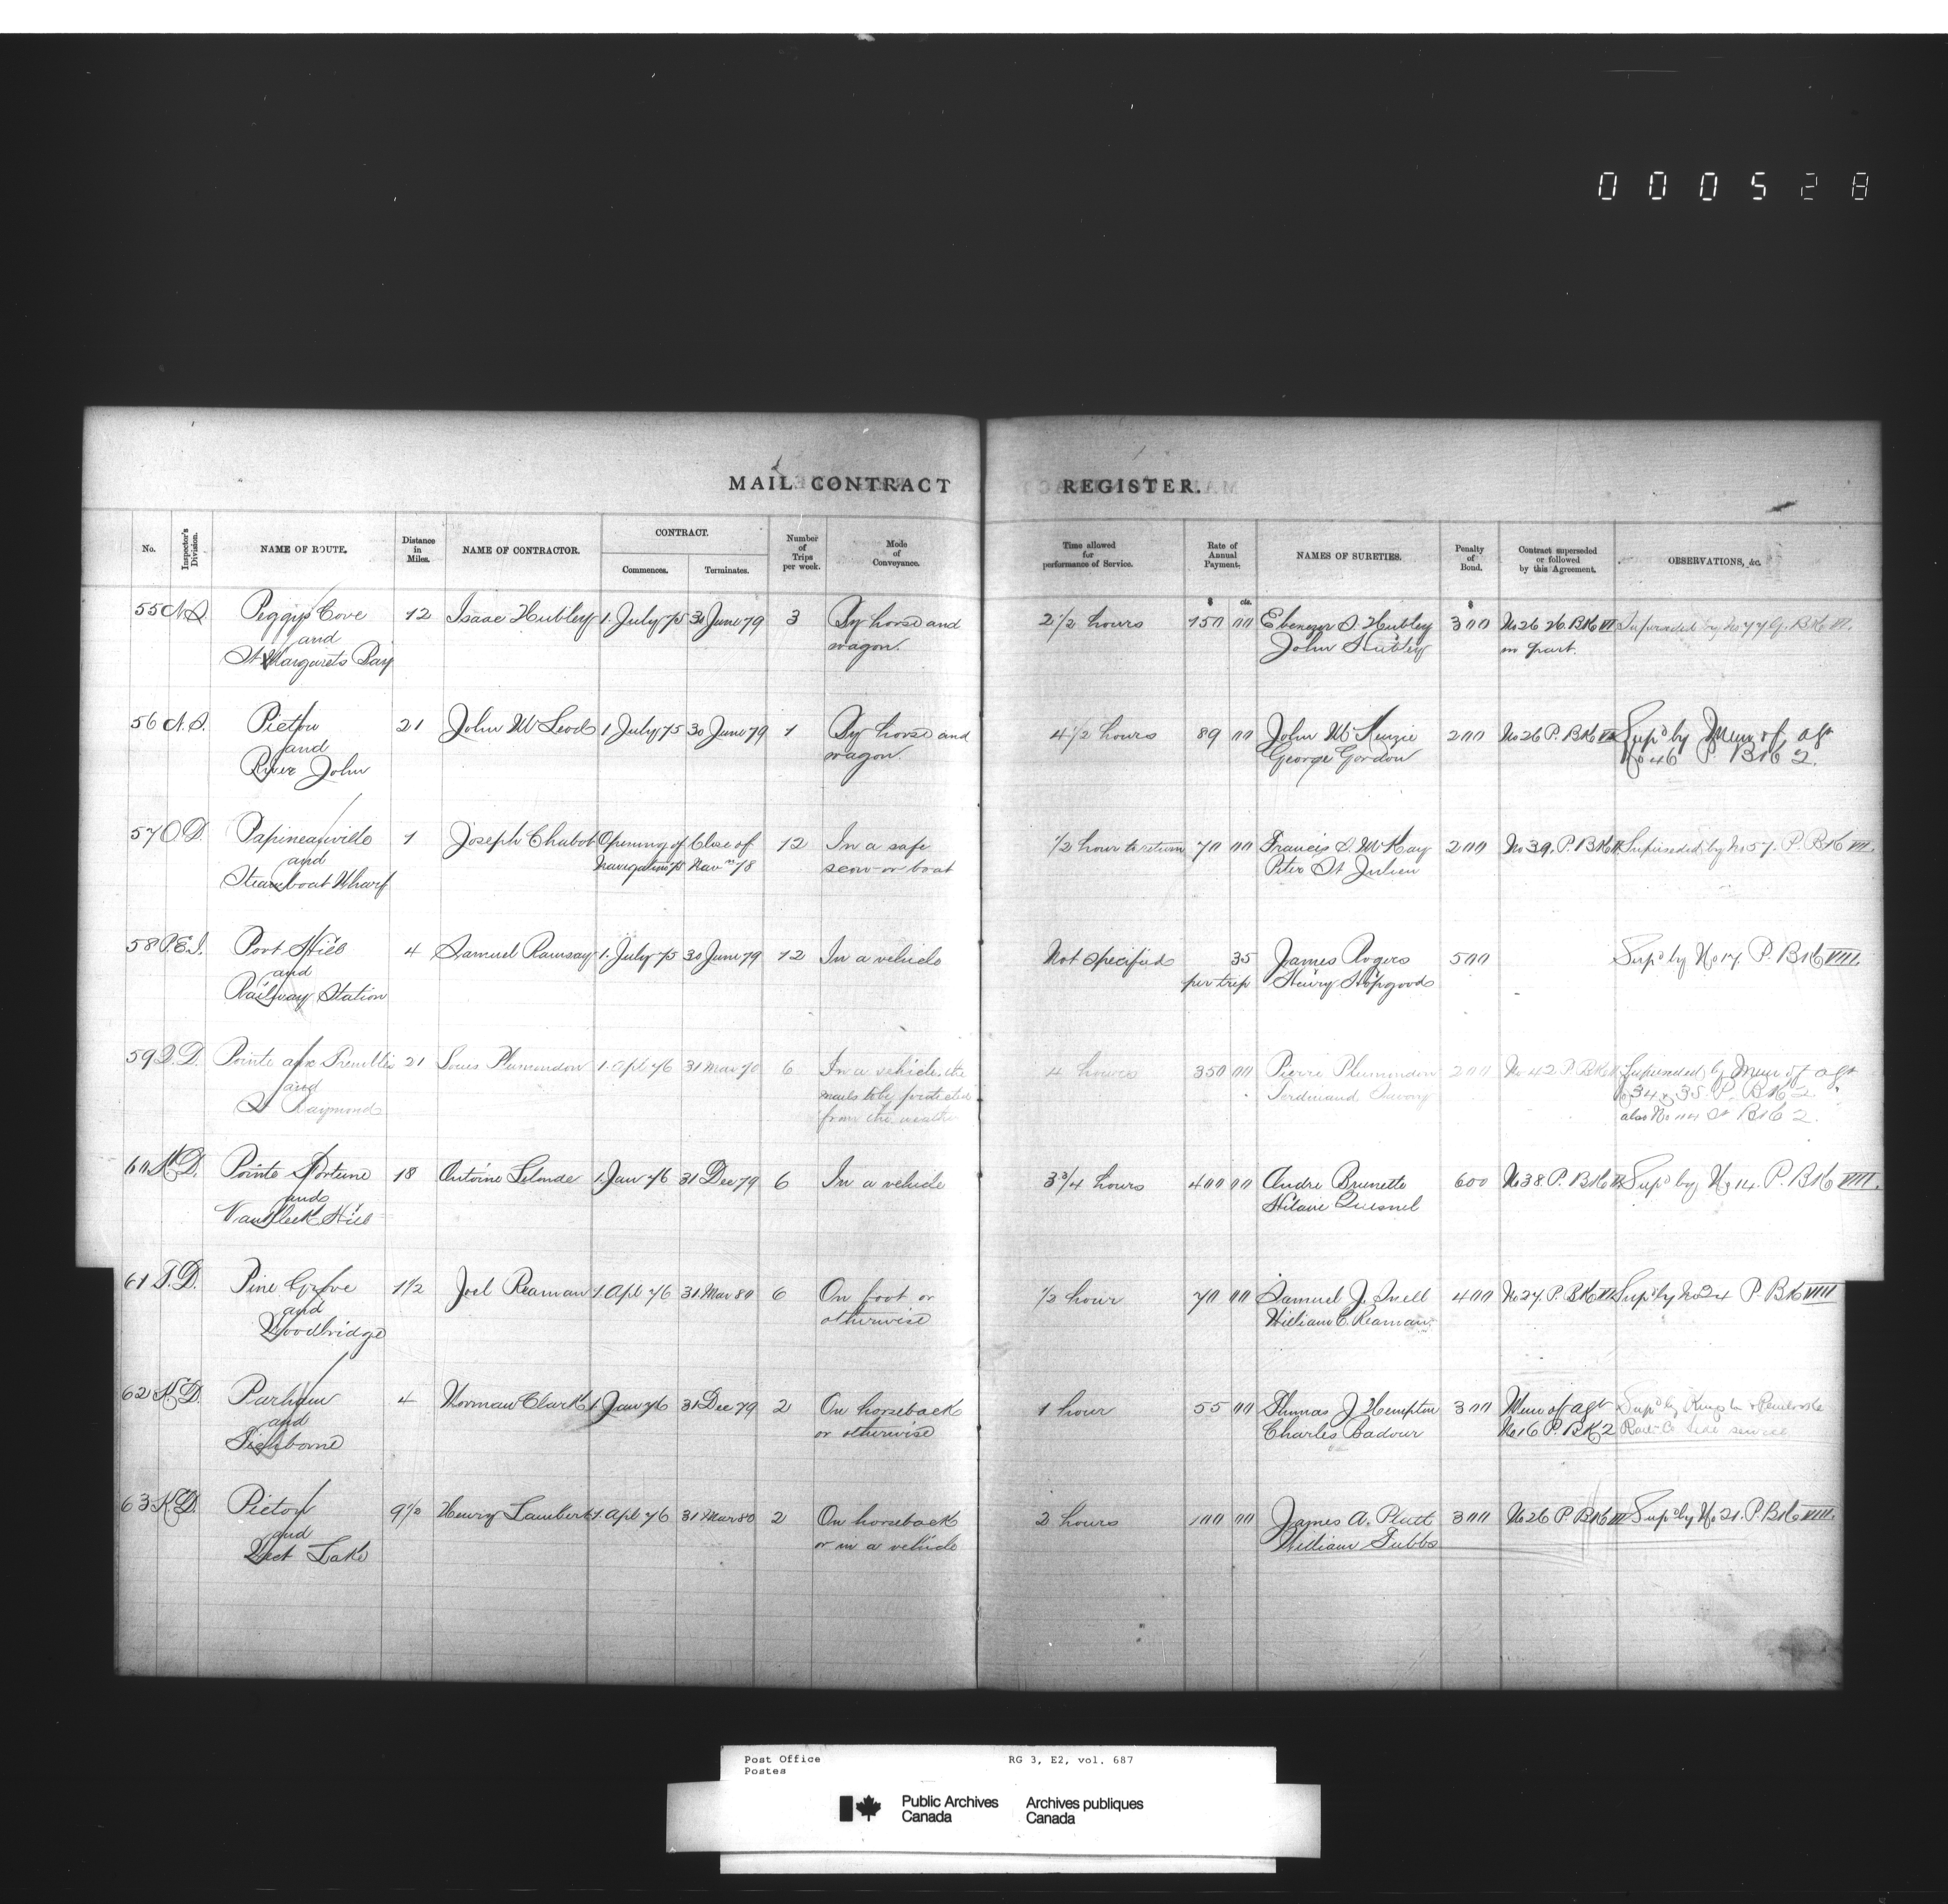 000528
MAIL CONTRACT REGISTER.
No. Inspector's Division. NAME OF ROUTE. Distance in Miles. NAME OF CONTRACTOR. CONTRACT. Commences. Terminates. Number of Trips per week. Mode of Conveyance. Time allowed for performance of Service. Rate of Annual Payment. NAMES OF SURETIES. Penalty of Bond. Contract superseded or followed by this Agreement. OBSERVATIONS, &c.
$ cts. $
55 N.S. Peggys Cove 12 Isaac Hubley 1. July 75 30 June 79 3 By horse and 2 1/2 hours 150 00 Ebenezer S. Hubley 300 No 26 H. BK VI Superseded by No 77 G. BK VI.
and wagon. John Hubley in part.
St Margarets Bay
56 N.S. Pictou 21 John McLeod 1 July 75 30 June 79 1 By horse and 4 1/2 hours 89 00 John McKenzie 200 No 26 P. BK Sup'd by Mem of agt
and wagon. George Gordon No 46 P. BK 2.
River John
57 O.D. Papineauville 1 Joseph Chabot Opening of Close of 12 In a safe 1/2 hour to return 70 00 Francis S. McKay 200 No 39. P. BK Superseded by No 57. P. BK VII.
and Navigation 75 Nav'n 78 scow or boat Peter St Julien
Steamboat Wharf
58 P.E.I. Port Hill 4 Samuel Ramsay 1. July 75 30 June 79 12 In a vehicle Not specified 35 James Rogers 500 Sup'd by No 17. P. BK VIII.
and per trip Henry Hopgood
Railway Station
59 Q.D. Pointe aux Trembles 21 Louis Plamondon 1. Apl 76 31 Mar 6 In a vehicle, the 4 hours 350 00 Pierre Plamondon 200 No 42 P. BK Superseded by Mem of agt
and mails to be protected Ferdinand No 34 & 35. P. BK 2
St Raymond from the weather also No BK 2.
60 M.D. Pointe Fortune 18 Antoine Lalonde 1. Jan 76 31 Dec 79 6 In a vehicle 3 3/4 hours 400 00 Andre Brunette 600 No 38. P. BK Sup'd by No 14. P. BK VIII.
and Hilaire Quesnel
Vankleek Hill
61 T.D. Pine Grove 1 1/2 Joel Reaman 1. Apl 76 31 Mar 80 6 On foot or 1/2 hour 70 00 Samuel J. Snell 400 No 27. P. BK VI Sup'd by No 24 P. BK VIII
and otherwise William C. Reaman.
Woodbridge
62 K.D. Parham 4 Norman Clark 1 Jan 76 31 Dec 79 2 On horseback 1 hour 55 00 Thomas J. Hempton 300 Mem of agt Sup'd by Kingston & Pembroke
and or otherwise Charles Badour No 16 P. BK 2 Rail. Co side service
Tichborne
63 K.D. Picton 9 1/2 Henry Lambert 1. Apl 76 31 Mar 80 2 On horseback 2 hours 100 00 James A. Platt 300 No 26 P. BK Sup'd by No 21. P. BK VIII.
and or in a vehicle William Tubbs
West Lake
Post Office RG 3, E2, vol. 687
Postes
Public Archives Archives publiques
Canada Canada